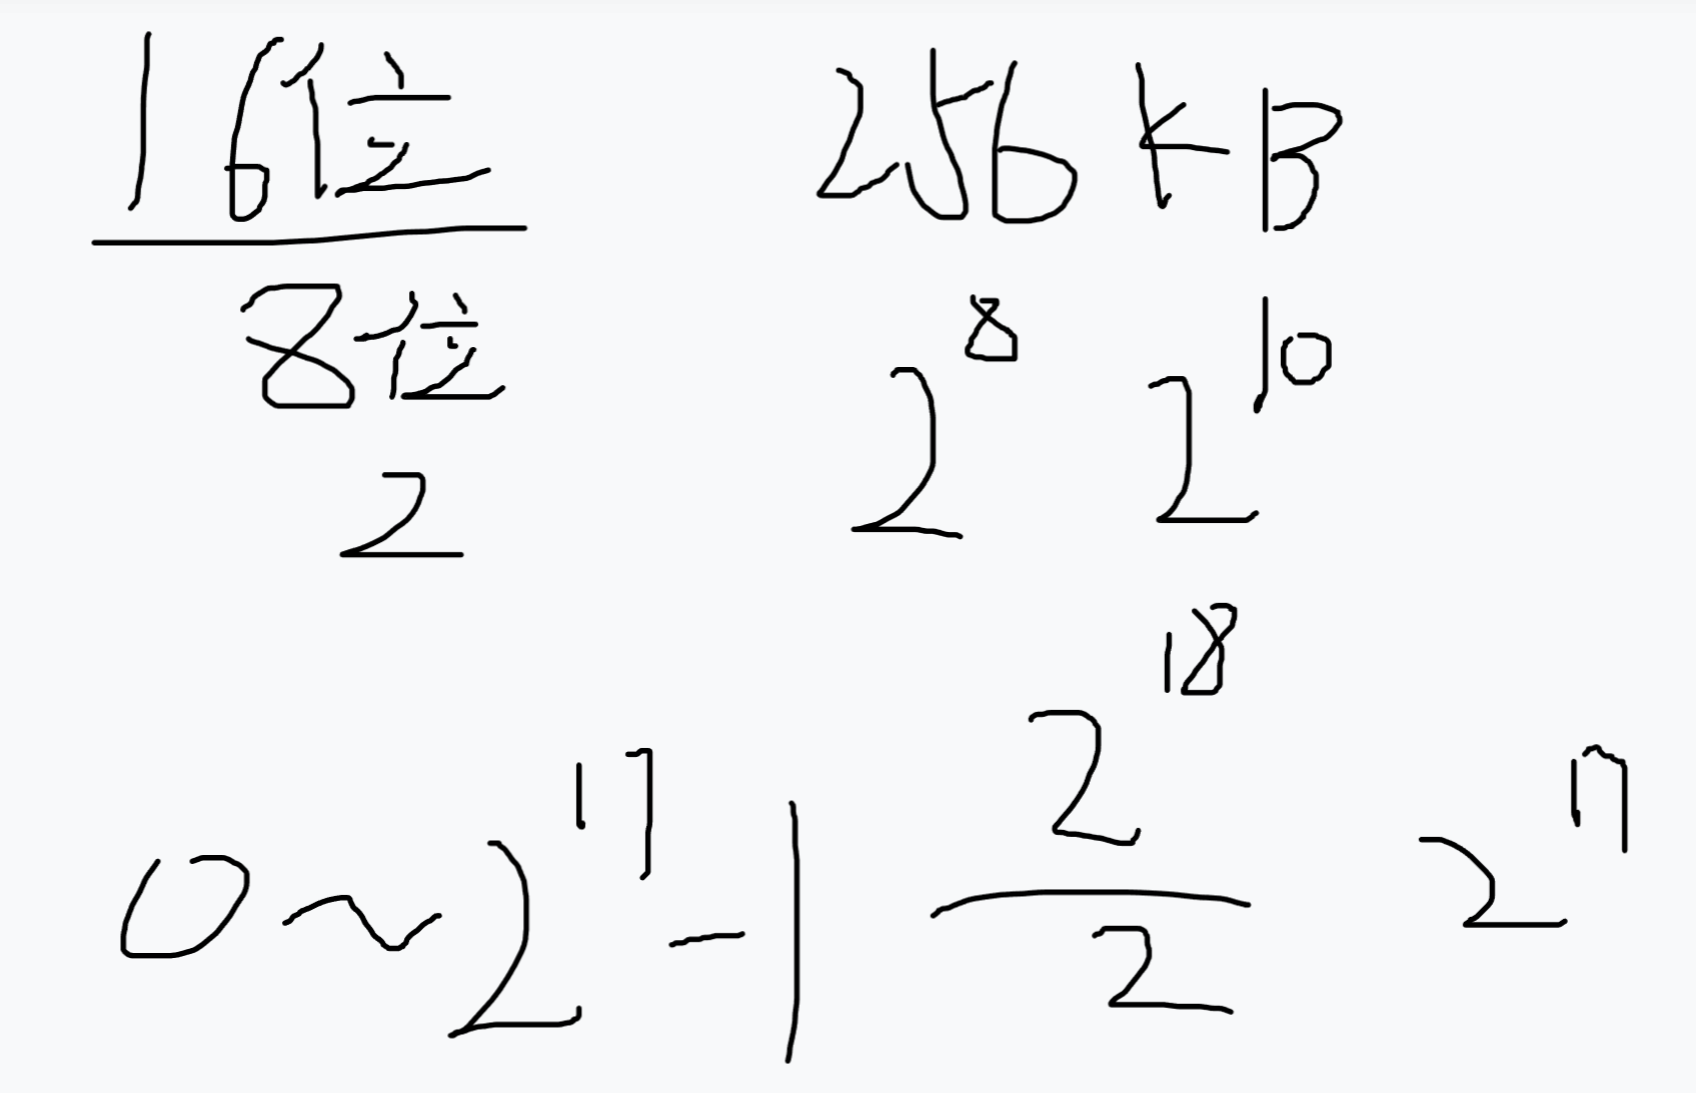 16位 256KB
8位 2^8 2^10
2
2^18
0~2^17-1 2 2^17